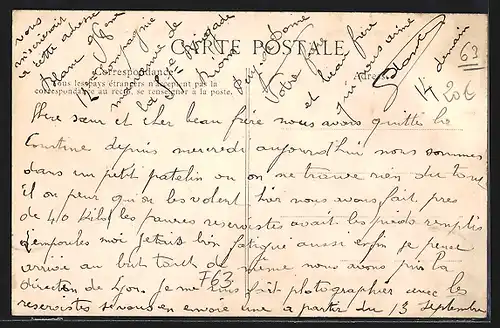 CARTE POSTALE
Correspondance
Tous les pays étrangers n'acceptent pas la
correspondance au recto, se renseigner à la poste.
vous
à cette adresse
Blanc
compagnie
de
la brigade
Riom
Puy de Dome
Votre frère
et beau frère
qui vous aime
Blanc
14
demain
63
20€
Chère sœur et cher beau frère nous avons quitté la
Courtine depuis mercredi aujourd'hui nous sommes
dans un petit patelin ou on ne trouve rien du tout
Et on peur qu'on les volent hier nous avons fait près
de 40 Kil les pauvres reservistes avait les pieds remplis
d'empoules moi j'etais bien fatigué aussi enfin je pense
arrivé au but tout de même nous avons pris la
763
direction de Lyon je me suis fait photographier avec les
reservistes je vous en envoie une a partir du 13 Septembre